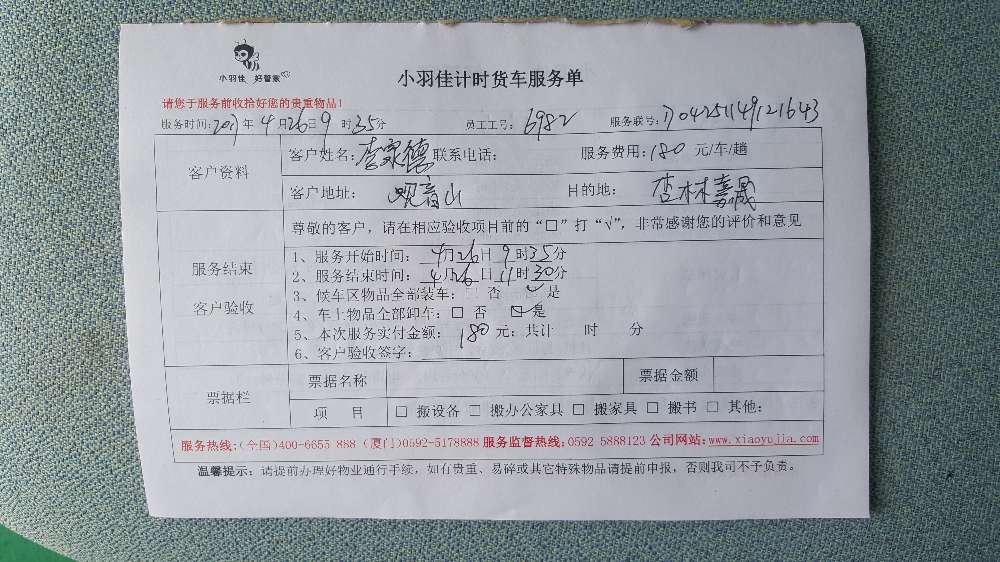 小羽佳 好管家
小羽佳计时货车服务单
请您于服务前收拾好您的贵重物品!
服务时间:2017年4月26日9时35分 员工工号:6982 服务联号:1704251149121643
客户资料
客户姓名:李家德 联系电话: 服务费用:180元/车/趟
客户地址: 观音山 目的地: 杏林嘉晟
服务结束
客户验收
尊敬的客户，请在相应验收项目前的“□”打“√”，非常感谢您的评价和意见
1、服务开始时间: 4月26日9时35分
2、服务结束时间: 4月26日11时30分
3、候车区物品全部装车: □ 否 ☑ 是
4、车上物品全部卸车: □ 否 ☑ 是
5、本次服务实付金额: 180元: 共计 时 分
6、客户验收签字:
票据栏
票据名称 票据金额
项 目 □ 搬设备 □ 搬办公家具 □ 搬家具 □ 搬书 □ 其他:
服务热线:(全国)400-6655 888 (厦门)0592-5178888 服务监督热线:0592 5888123 公司网站:www.xiaoyujia.com
温馨提示: 请提前办理好物业通行手续，如有贵重、易碎或其它特殊物品请提前申报，否则我司不予负责。